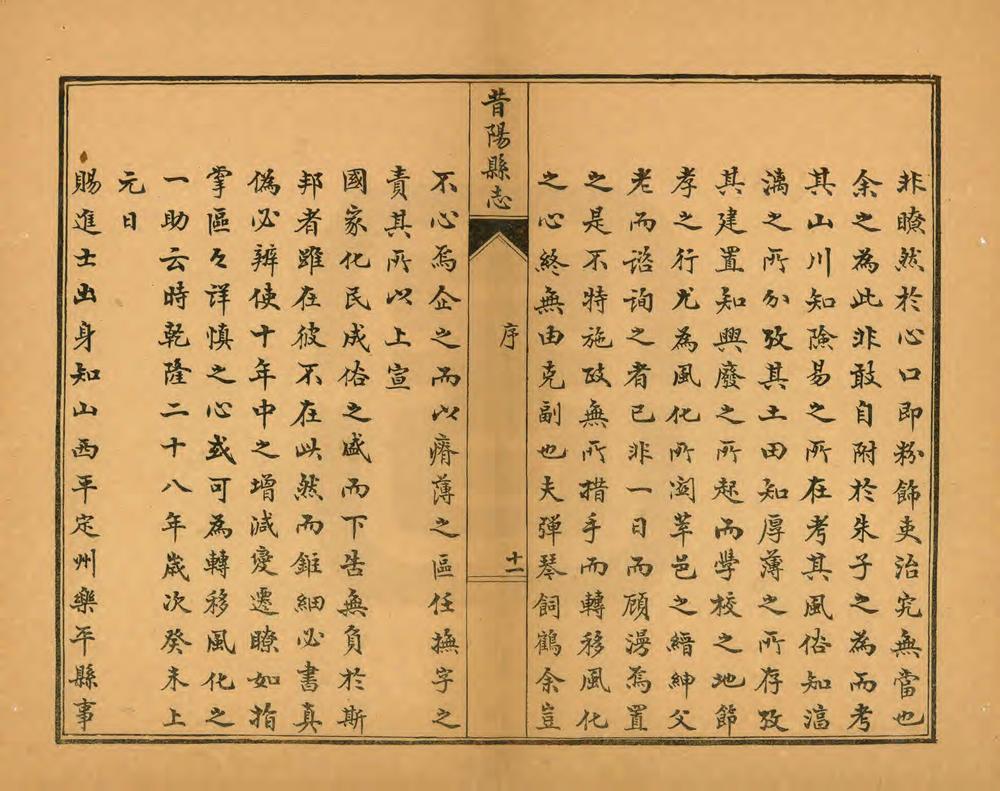 非瞭然於心口即粉飾吏治究無當也
余之為此非敢自附於朱子之為而考
其山川知險易之所在考其風俗知滈
漓之所分攷其土田知厚薄之所存攷
其建置知興廢之所起而學校之地節
孝之行尤為風化所関萃邑之縉紳父
老而諮詢之者已非一日而顧漫焉置
之是不特施政無所措手而轉移風化
之心終無由克副也夫彈琴飼鶴余豈
昔陽縣志
序
十一
不心焉企之而以瘠薄之區任撫字之
責其所以上宣
國家化民成俗之盛而下告無負於斯
邦者雖在彼不在此然而錐細必書真
偽必辨使十年中之增減變遷瞭如指
掌區々詳慎之心或可為轉移風化之
一助云時乾隆二十八年歲次癸未上
元日
賜進士出身知山西平定州樂平縣事